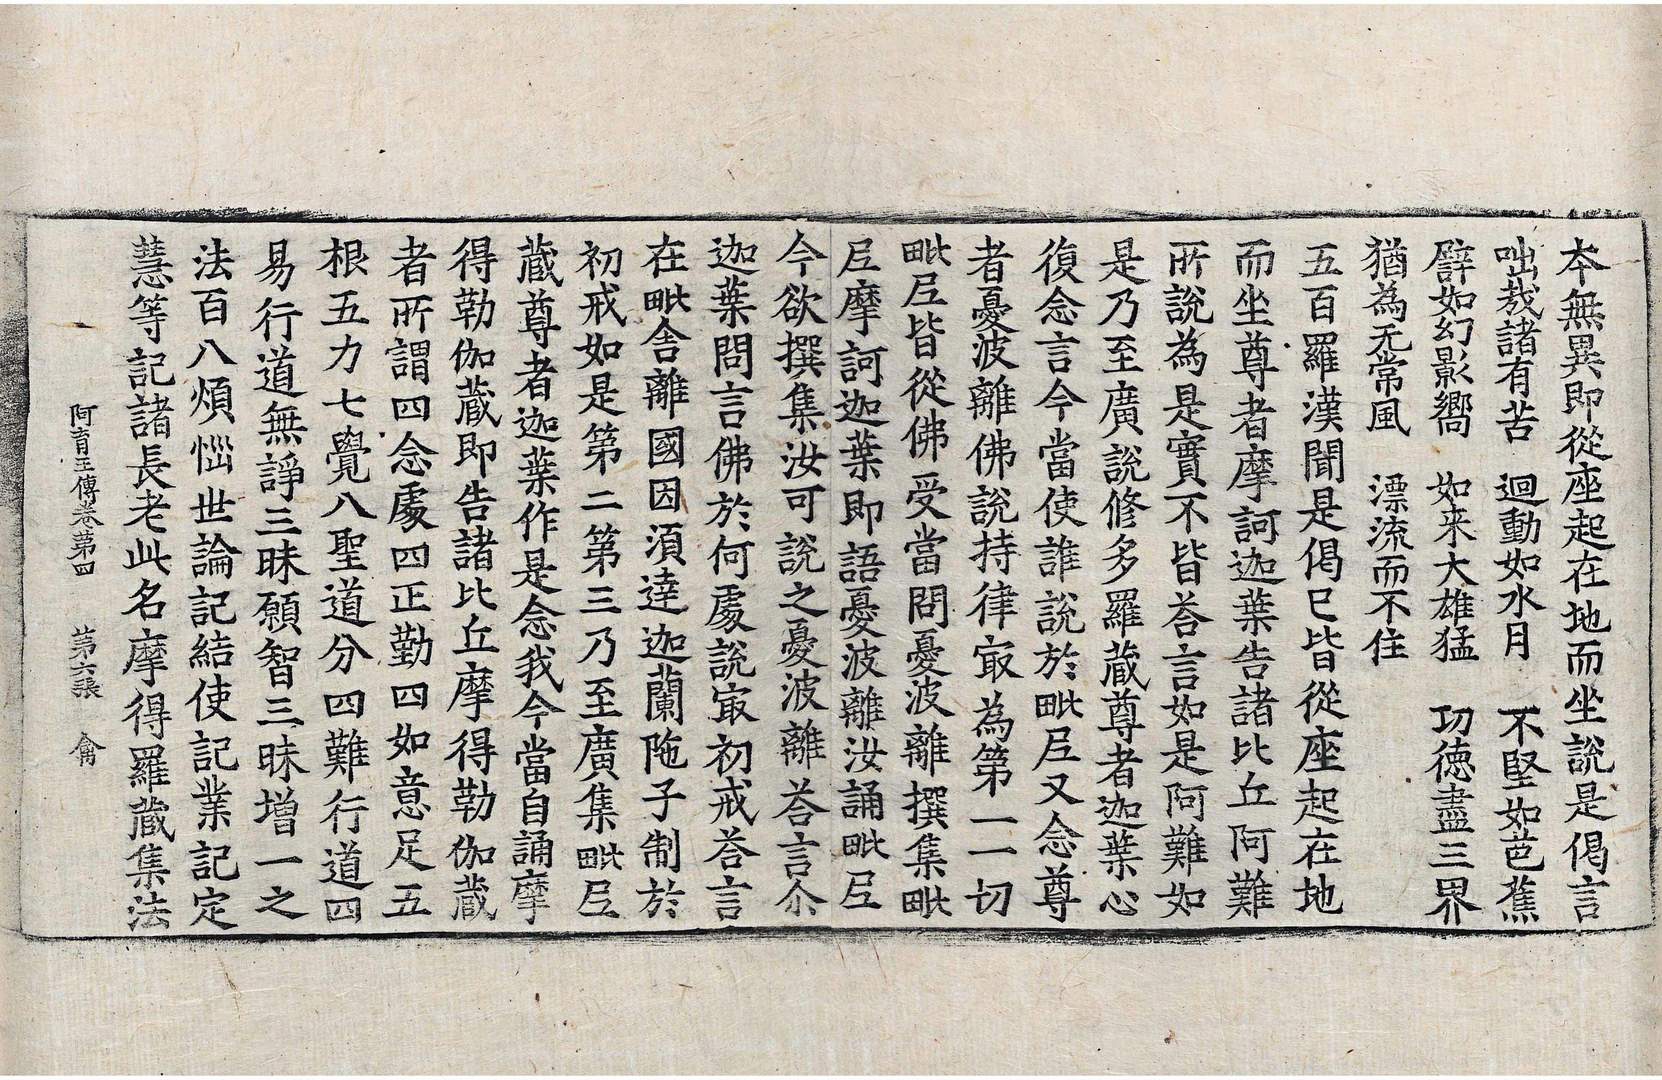 本無異即從座起在地而坐說是偈言
咄㦲諸有苦　迴動如水月　不堅如芭蕉
譬如幻影嚮　如来大雄猛　功德盡三界
猶為无常風　漂流而不住
五百羅漢聞是偈已皆從座起在地
而坐尊者摩訶迦葉告諸比丘阿難
所說為是實不皆荅言如是阿難如
是乃至廣說修多羅蔵尊者迦葉心
復念言今當使誰說於毗𡰱又念尊
者憂波離佛說持律㝡為第一一切
毗𡰱皆從佛受當問憂波離撰集毗
𡰱摩訶迦葉即語憂波離汝誦毗𡰱
今欲撰集汝可說之憂波離荅言尒
迦葉問言佛於何處說㝡初戒荅言
在毗舍離國因湏達迦蘭陁子制於
初戒如是第二第三乃至廣集毗𡰱
蔵尊者迦葉作是念我今當自誦摩
得勒伽蔵即告諸比丘摩得勒伽蔵
者所謂四念處四正勤四如意足五
根五力七覺八聖道分四難行道四
易行道無諍三昧願智三昧增一之
法百八煩惱世論記結使記業記定
慧等記諸長老此名摩得羅蔵集法
阿育王傳卷第四　第六張　禽